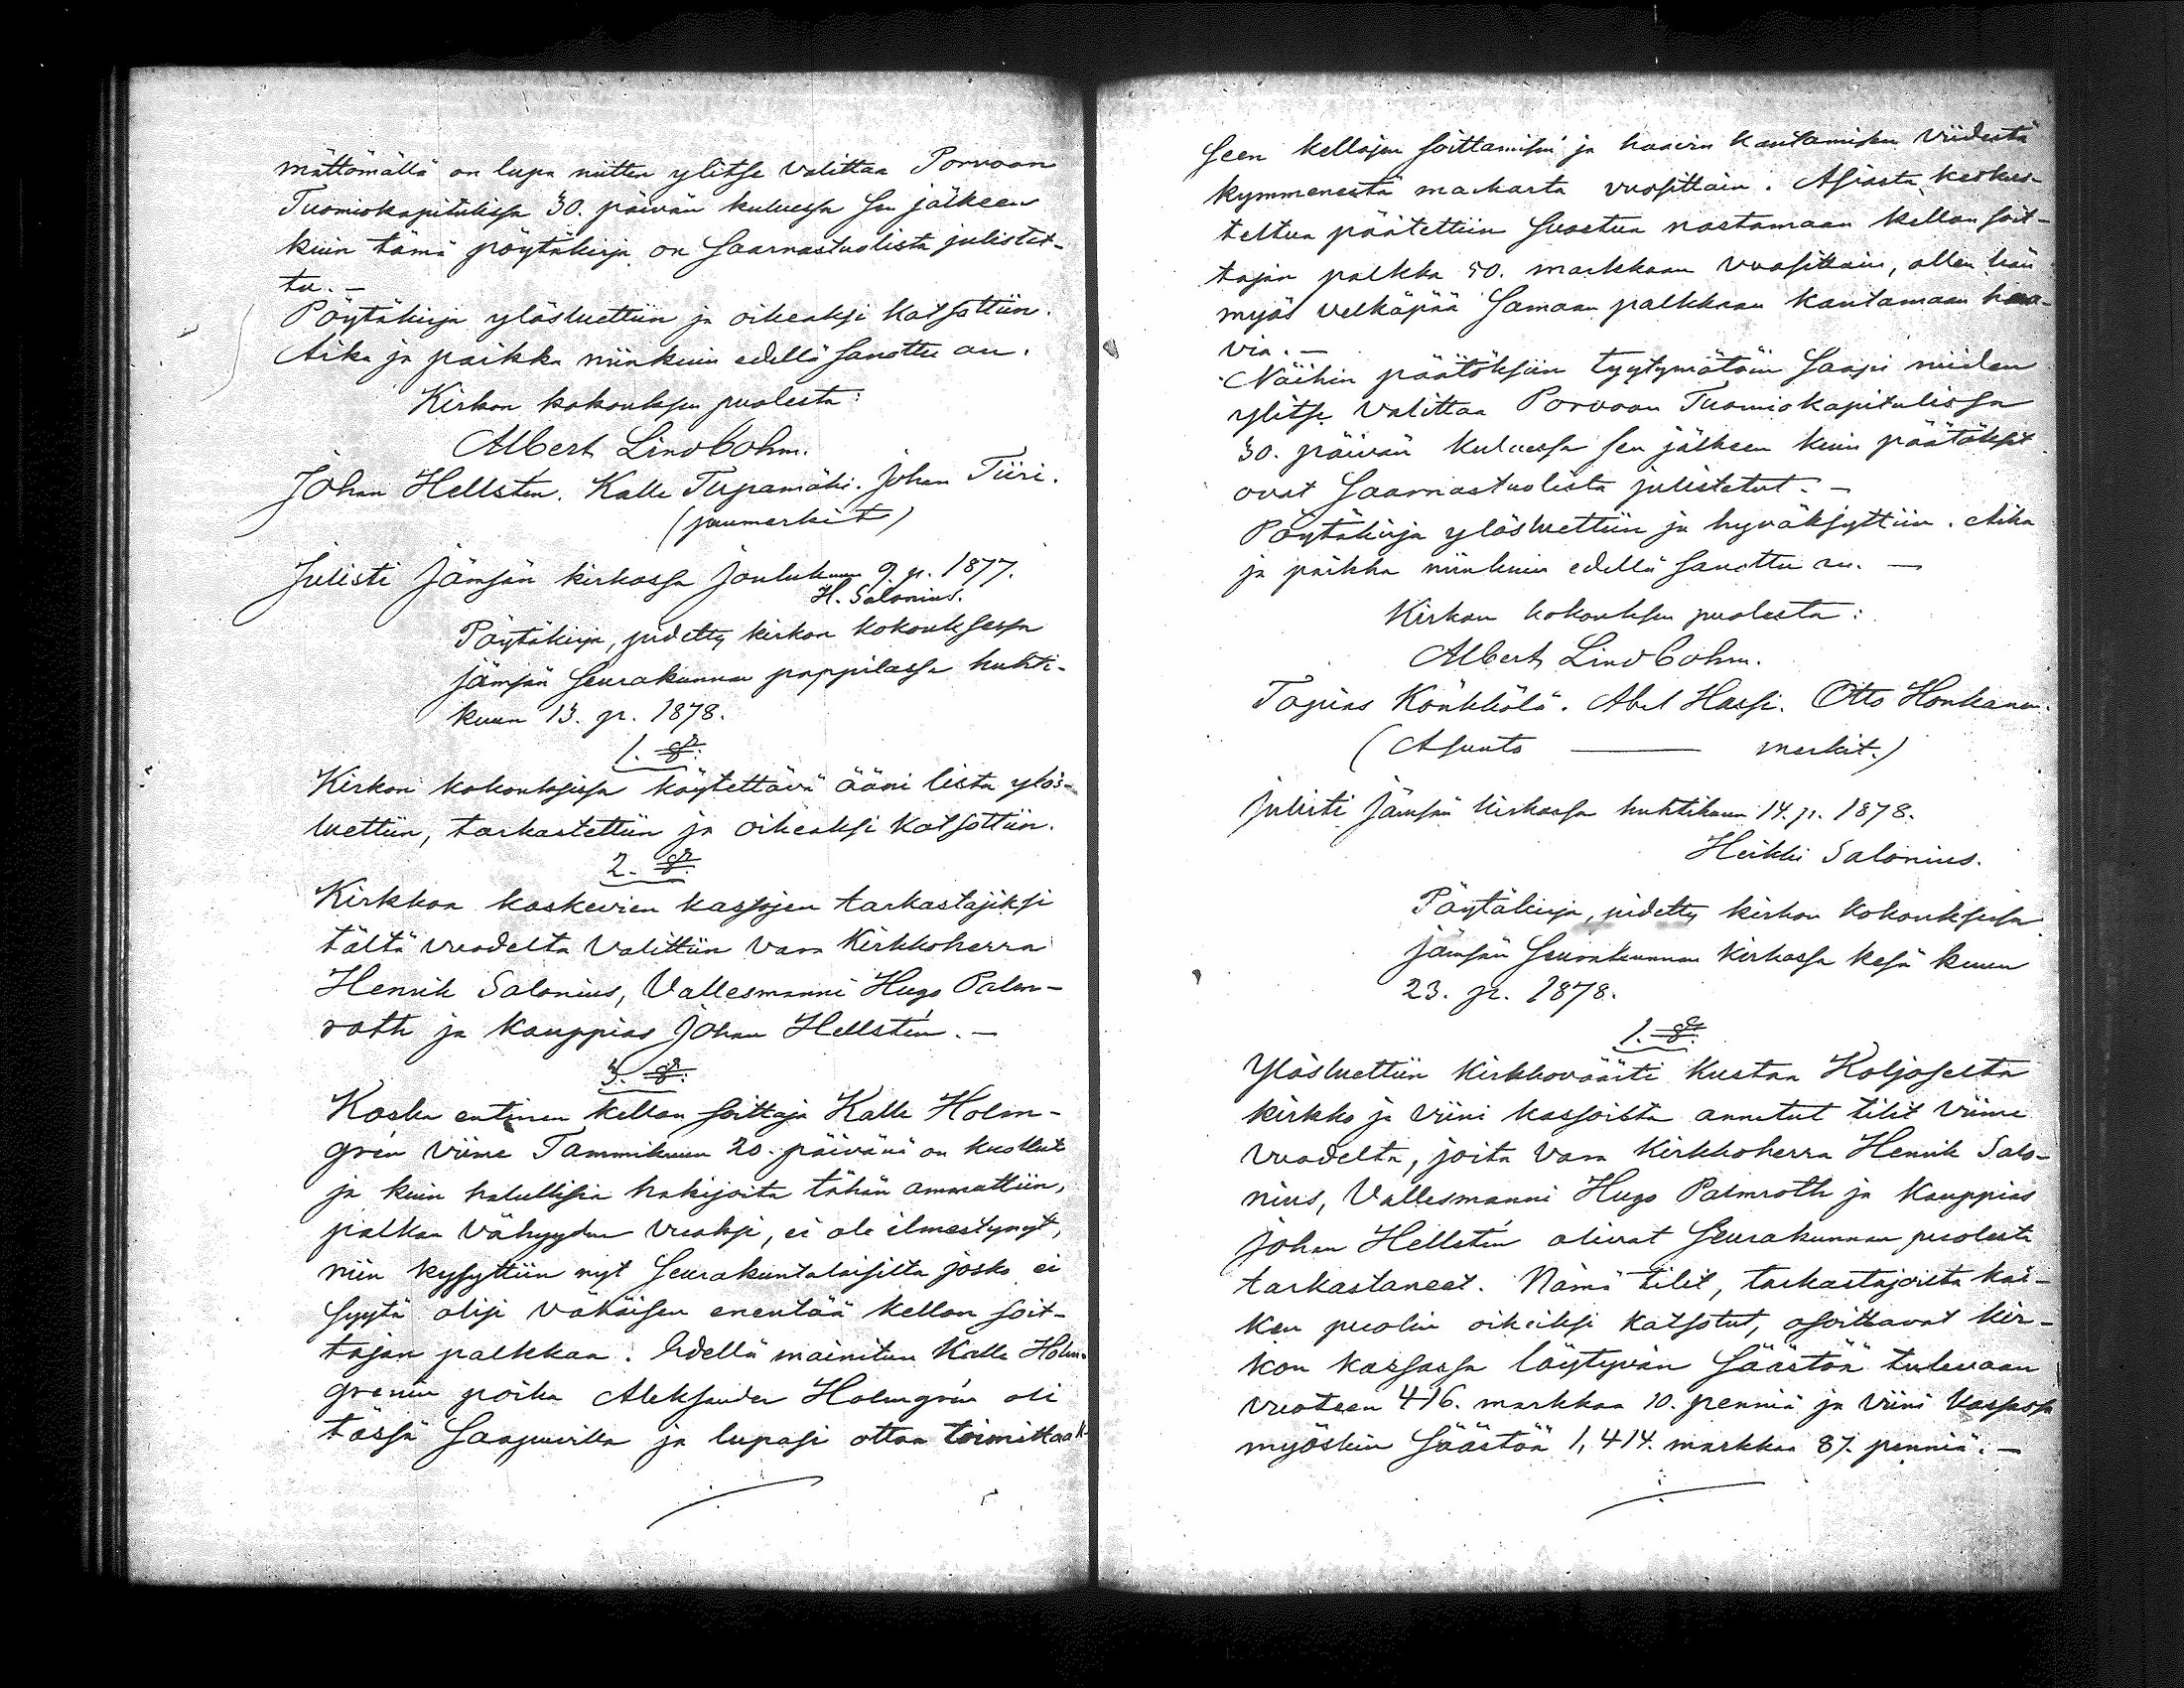 mättömällä on lupa niitten ylitse valittaa Porvoon
Tuomiokapitulissa 30. päivän kuluessa sen jälkeen
kuin tämä pöytäkirja on Saarnastuolista julistet-
tu. —
Pöytäkirja ylösluettiin ja oikeaksi katsottiin.
Aika ja paikka niinkuin edellä sanottu on.
Kirkon kokouksen puolesta:
Albert Lindbohm.
Johan Hellstén. Kalle Tupamäki. Johan Tiiri.
(puumerkit)
Julisti Jämsän kirkossa Joulukuun 9. p. 1877.
H. Salonius.
Pöytäkirja, pidetty kirkon kokouksessa
Jämsän Seurakunnan pappilassa huhti-
kuun 13. p. 1878.
1. §.
Kirkon kokouksissa käytettävä ääni lista ylös-
luettiin, tarkastettiin ja oikeaksi katsottiin.
2. §.
Kirkkoa koskevien kassojen tarkastajiksi
tältä vuodelta valittiin vara Kirkkoherra
Henrik Salonius, Vallesmanni Hugo Palm-
roth ja kauppias Johan Hellstén. —
3. §.
Koska entinen kellon soittaja Kalle Holm-
grén viime Tammikuun 20. päivänä on kuollut
ja kuin halullisia hakijoita tähän ammattiin,
palkan vähyyden vuoksi, ei ole ilmestynyt,
niin kysyttiin nyt Seurakuntalaisilta josko ei
syytä olisi vähäisen enentää kellon soit-
tajan palkkaa. Edellä mainitun Kalle Holm-
grenin poika Aleksander Holmgrén oli
tässä Saapuvilla ja lupasi ottaa toimittaak-
seen kellojen soittamisen ja haavin kantamisen viidestä
kymmenestä markasta vuosittain. Asiasta keskus-
teltua päätettiin Suostua nostamaan kellon soit-
tajan palkka 50. markkaan vuosittain, ollen hän
myös velkapää Samaan palkkaan kantamaan haa-
via. —
Näihin päätöksiin tyytymätöin Saapi niiden
ylitse valittaa Porvoon Tuomiokapitulissa
30. päivän kuluessa sen jälkeen kuin päätökset
ovat Saarnastuolista julistetut. —
Pöytäkirja ylösluettiin ja hyväksyttiin. Aika
ja paikka niinkuin edellä sanottu on. —
Kirkon kokouksen puolesta:
Albert Lindbohm.
Topias Könkkölä. Abel Hassi. Otto Honkanen.
(Asunto — merkit.)
Julisti Jämsän kirkossa huhtikuun 14. p. 1878.
Heikki Salonius.
Pöytäkirja, pidetty kirkon kokouksessa
Jämsän Seurakunnan kirkossa kesä kuun
23. p. 1878.
1. §.
Ylösluettiin Kirkkoväärti Kustaa Koljoselta
kirkko ja viini kassoista annetut tilit viime
vuodelta, joita vara Kirkkoherra Henrik Salo-
nius, Vallesmanni Hugo Palmroth ja Kauppias
Johan Hellstén olivat Seurakunnan puolesta
tarkastaneet. Nämä tilit, tarkastajoilta kai-
ken puolin oikeiksi katsotut, osoittavat kir-
kon kassassa löytyvän Säästöä tulevaan
vuoteen 416. markkaa 10. penniä ja viini kassassa
myöskin Säästöä 1,414. markkaa 87. penniä. —